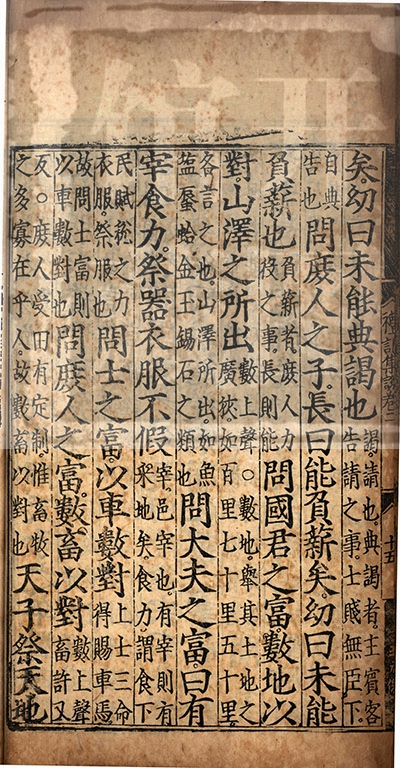 矣。幼曰未能典謁也
謁請也。典謁者主賓客
告請之事。士賤無臣。下
自典
告也
問庶人之子。長曰能負薪矣。幼曰未能
負薪也
負薪者庶人力
役之事。長則能
問國君之富數地以
對。山澤之所出
數上聲。○數地。舉其土地之
廣狹。如百里七十里五十里。
各言之也。山澤所出。如魚
盐蜃蛤金玉錫石之類也
問大夫之富。曰有
宰食力。祭器衣服不假
宰。邑宰也。有宰則有
采地矣。食力謂食下
民賦稅之力
衣服。祭服也
問士之富。以車數對
上士三命
得賜車馬
故問士富則
以車數對也
問庶人之富。數畜以對
數上聲
畜許又
反。○庶人受田有定制惟畜牧
之多寡在乎人。故數畜以對也
天子祭天地
禮記集說卷二
十五